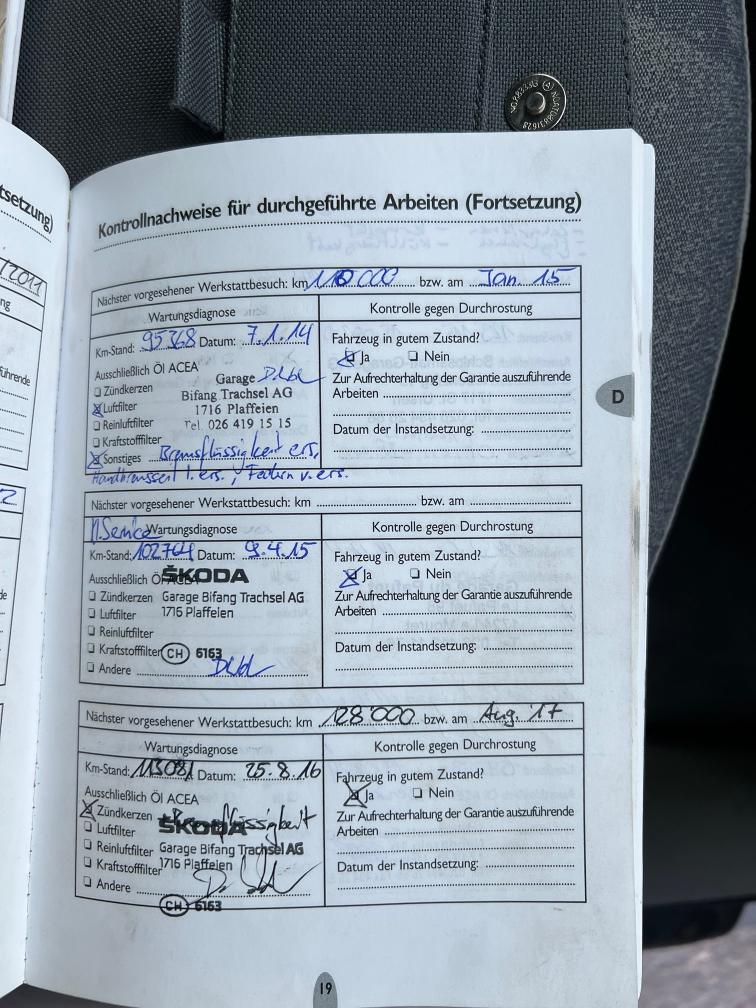 tsetzung)
/2011
ng
führende
2
de
Kontrollnachweise für durchgeführte Arbeiten (Fortsetzung)
Nächster vorgesehener Werkstattbesuch: km 110'000 bzw. am Jan 15
Wartungsdiagnose
Kontrolle gegen Durchrostung
Km-Stand: 95368 Datum: 7.1.14
Fahrzeug in gutem Zustand?
☒ Ja ☐ Nein
Ausschließlich Öl ACEA
☐ Zündkerzen
Garage
Zur Aufrechterhaltung der Garantie auszuführende
Arbeiten
☒ Luftfilter
Bifang Trachsel AG
1716 Plaffeien
☐ Reinluftfilter
Tel. 026 419 15 15
Datum der Instandsetzung:
☐ Kraftstofffilter
☒ Sonstiges Bremsflüssigkeit ers,
Handbremsseil l. ers., Federn v. ers.
D
Nächster vorgesehener Werkstattbesuch: km bzw. am
Wartungsdiagnose
Kontrolle gegen Durchrostung
Km-Stand: 102764 Datum: 9.4.15
Fahrzeug in gutem Zustand?
☒ Ja ☐ Nein
Ausschließlich Öl ACEA
ŠKODA
☐ Zündkerzen
Garage Bifang Trachsel AG
Zur Aufrechterhaltung der Garantie auszuführende
Arbeiten
☐ Luftfilter
1716 Plaffeien
☐ Reinluftfilter
☐ Kraftstofffilter
CH 6163
Datum der Instandsetzung:
☐ Andere
Nächster vorgesehener Werkstattbesuch: km 128'000 bzw. am Aug. 17
Wartungsdiagnose
Kontrolle gegen Durchrostung
Km-Stand: 113081 Datum: 25.8.16
Fahrzeug in gutem Zustand?
☒ Ja ☐ Nein
Ausschließlich Öl ACEA
☒ Zündkerzen + Bremsflüssigkeit
☐ Luftfilter
ŠKODA
Zur Aufrechterhaltung der Garantie auszuführende
Arbeiten
☐ Reinluftfilter
Garage Bifang Trachsel AG
☐ Kraftstofffilter
1716 Plaffeien
Datum der Instandsetzung:
☐ Andere
CH 6163
19